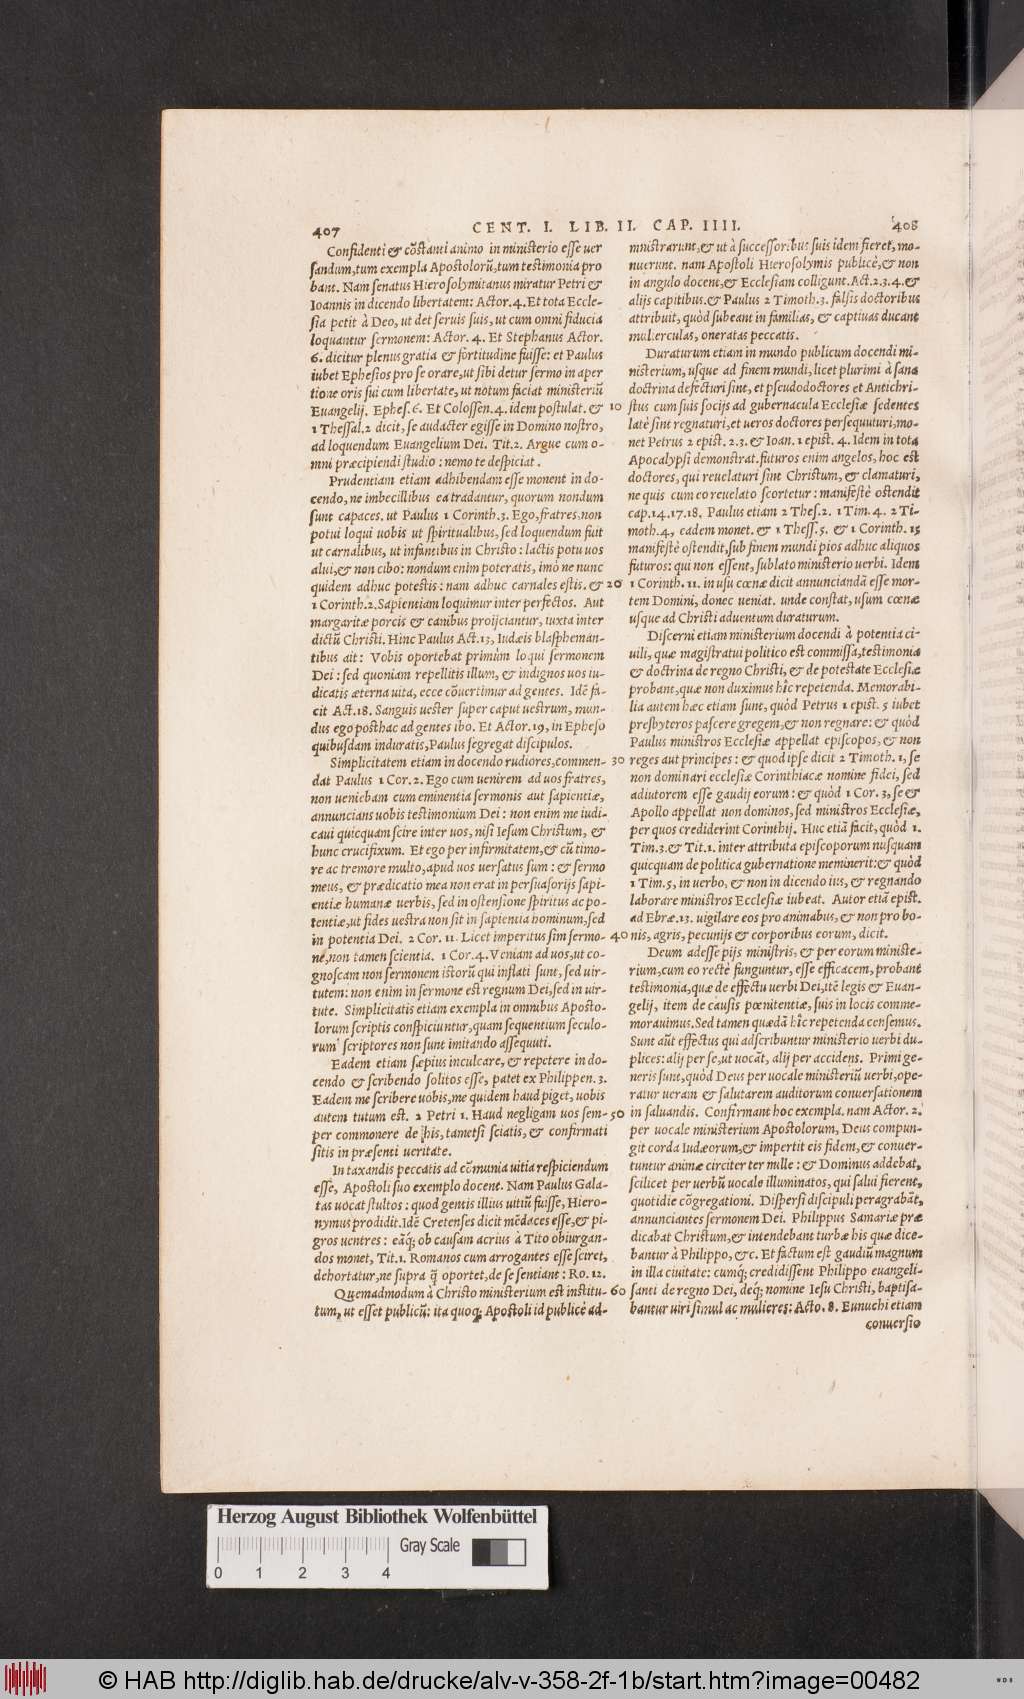 407
CENT. I. LIB. II. CAP. IIII.
408
Confidenti & cõstanti animo in ministerio esse uer
sandum, tum exempla Apostolorũ, tum testimonia pro
bant. Nam senatus Hierosolymitanus miratur Petri &
Ioannis in dicendo libertatem: Actor. 4. Et tota Eccle-
sia petit à Deo, ut det seruis suis, ut cum omni fiducia
loquantur sermonem: Actor. 4. Et Stephanus Actor.
6. dicitur plenus gratia & fortitudine fuisse: et Paulus
iubet Ephesios pro se orare, ut sibi detur sermo in aper
tione oris sui cum libertate, ut notum faciat ministeriũ
Euangelij. Ephes. 6. Et Colossen. 4. idem postulat. &
1 Thessal. 2 dicit, se audacter egisse in Domino nostro,
ad loquendum Euangelium Dei. Tit. 2. Argue cum o-
mni præcipiendi studio: nemo te despiciat.
Prudentiam etiam adhibendam esse monent in do-
cendo, ne imbecillibus ea tradantur, quorum nondum
sunt capaces. ut Paulus 1 Corinth. 3. Ego, fratres, non
potui loqui uobis ut spiritualibus, sed loquendum fuit
ut carnalibus, ut infantibus in Christo: lactis potu uos
alui, & non cibo: nondum enim poteratis, imò ne nunc
quidem adhuc potestis: nam adhuc carnales estis. &
1 Corinth. 2. Sapientiam loquimur inter perfectos. Aut
margaritæ porcis & canibus proijciantur, iuxta inter
dictũ Christi. Hinc Paulus Act. 13, Iudæis blaspheman-
tibus ait: Vobis oportebat primùm loqui sermonem
Dei: sed quoniam repellitis illum, & indignos uos iu-
dicatis æterna uita, ecce cõuertimur ad gentes. Idẽ fa-
cit Act. 18. Sanguis uester super caput uestrum, mun-
dus ego posthac ad gentes ibo. Et Actor. 19, in Epheso
quibusdam induratis, Paulus segregat discipulos.
Simplicitatem etiam in docendo rudiores, commen-
dat Paulus 1 Cor. 2. Ego cum uenirem ad uos fratres,
non ueniebam cum eminentia sermonis aut sapientiæ,
annuncians uobis testimonium Dei: non enim me iudi-
caui quicquam scire inter uos, nisi Iesum Christum, &
hunc crucifixum. Et ego per infirmitatem, & cũ timo-
re ac tremore multo, apud uos uersatus sum: & sermo
meus, & prædicatio mea non erat in persuasorijs sapi-
entiæ humanæ uerbis, sed in ostensione spiritus ac po-
tentiæ, ut fides uestra non sit in sapientia hominum, sed
in potentia Dei. 2 Cor. 11. Licet imperitus sim sermo-
ne, non tamen scientia. 1 Cor. 4. Veniam ad uos, ut co-
gnoscam non sermonem istorũ qui inflati sunt, sed uir-
tutem: non enim in sermone est regnum Dei, sed in uir-
tute. Simplicitatis etiam exempla in omnibus Aposto-
lorum scriptis conspiciuntur, quam sequentium seculo-
rum scriptores non sunt imitando assequuti.
Eadem etiam sæpius inculcare, & repetere in do-
cendo & scribendo solitos esse, patet ex Philippen. 3.
Eadem me scribere uobis, me quidem haud piget, uobis
autem tutum est. 2 Petri 1. Haud negligam uos sem-
per commonere de his, tametsi sciatis, & confirmati
sitis in præsenti ueritate.
In taxandis peccatis ad cõmunia uitia respiciendum
esse, Apostoli suo exemplo docent. Nam Paulus Gala-
tas uocat stultos: quod gentis illius uitiũ fuisse, Hiero-
nymus prodidit. Idẽ Cretenses dicit mẽdaces esse, & pi-
gros uentres: eãq́; ob causam acrius à Tito obiurgan-
dos monet, Tit. 1. Romanos cum arrogantes esse sciret,
dehortatur, ne supra q̃ oportet, de se sentiant: Ro. 12.
Quemadmodum à Christo ministerium est institu-
tum, ut esset publicũ: ita quoq; Apostoli id publicè ad-
10
20
30
40
50
60
ministrarunt, & ut à successoribus suis idem fieret, mo-
nuerunt. nam Apostoli Hierosolymis publicè, & non
in angulo docent, & Ecclesiam colligunt. Act. 2. 3. 4. &
alijs capitibus. & Paulus 2 Timoth. 3. falsis doctoribus
attribuit, quòd subeant in familias, & captiuas ducant
mulierculas, oneratas peccatis.
Duraturum etiam in mundo publicum docendi mi-
nisterium, usque ad finem mundi, licet plurimi à sana
doctrina defecturi sint, et pseudodoctores et Antichri-
stus cum suis socijs ad gubernacula Ecclesiæ sedentes
latè sint regnaturi, et ueros doctores persequuturi, mo-
net Petrus 2 epist. 2. 3. & Ioan. 1 epist. 4. Idem in tota
Apocalypsi demonstrat. futuros enim angelos, hoc est
doctores, qui reuelaturi sint Christum, & clamaturi,
ne quis cum eo reuelato scortetur: manifestè ostendit
cap. 14. 17. 18. Paulus etiam 2 Thes. 2. 1 Tim. 4. 2 Ti-
moth. 4, eadem monet. & 1 Thess. 5. & 1 Corinth. 15
manifestè ostendit, sub finem mundi pios adhuc aliquos
futuros: qui non essent, sublato ministerio uerbi. Idem
1 Corinth. 11. in usu cœnæ dicit annunciandã esse mor-
tem Domini, donec ueniat. unde constat, usum cœnæ
usque ad Christi aduentum duraturum.
Discerni etiam ministerium docendi à potentia ci-
uili, quæ magistratui politico est commissa, testimonia
& doctrina de regno Christi, & de potestate Ecclesiæ
probant, quæ non duximus hîc repetenda. Memorabi-
lia autem hæc etiam sunt, quòd Petrus 1 epist. 5 iubet
presbyteros pascere gregem, & non regnare: & quòd
Paulus ministros Ecclesiæ appellat episcopos, & non
reges aut principes: & quod ipse dicit 2 Timoth. 1, se
non dominari ecclesiæ Corinthiacæ nomine fidei, sed
adiutorem esse gaudij eorum: & quòd 1 Cor. 3, se &
Apollo appellat non dominos, sed ministros Ecclesiæ,
per quos crediderint Corinthij. Huc etiã facit, quòd 1.
Tim. 3. & Tit. 1. inter attributa episcoporum nusquam
quicquam de politica gubernatione meminerit: & quòd
1 Tim. 5, in uerbo, & non in dicendo ius, & regnando
laborare ministros Ecclesiæ iubeat. Autor etiã epist.
ad Ebræ. 13. uigilare eos pro animabus, & non pro bo-
nis, agris, pecunijs & corporibus eorum, dicit.
Deum adesse pijs ministris, & per eorum ministe-
rium, cum eo rectè funguntur, esse efficacem, probant
testimonia, quæ de effectu uerbi Dei, itẽ legis & Euan-
gelij, item de causis pœnitentiæ, suis in locis comme-
morauimus. Sed tamen quædã hîc repetenda censemus.
Sunt aũt effectus qui adscribuntur ministerio uerbi du-
plices: alij per se, ut uocãt, alij per accidens. Primi ge-
neris sunt, quòd Deus per uocale ministeriũ uerbi, ope-
ratur ueram & salutarem auditorum conuersationem
in saluandis. Confirmant hoc exempla. nam Actor. 2.
per uocale ministerium Apostolorum, Deus compun-
git corda Iudæorum, & impertit eis fidem, & conuer-
tuntur animæ circiter ter mille: & Dominus addebat,
scilicet per uerbũ uocale illuminatos, qui salui fierent,
quotidie cõgregationi. Dispersi discipuli peragrabãt,
annunciantes sermonem Dei. Philippus Samariæ præ
dicabat Christum, & intendebant turbæ his quæ dice-
bantur à Philippo, &c. Et factum est gaudiũ magnum
in illa ciuitate: cumq́; credidissent Philippo euangeli-
santi de regno Dei, deq́; nomine Iesu Christi, baptisa-
bantur uiri simul ac mulieres: Acto. 8. Eunuchi etiam
conuersio
Herzog August Bibliothek Wolfenbüttel
Gray Scale
0 1 2 3 4
© HAB http://diglib.hab.de/drucke/alv-v-358-2f-1b/start.htm?image=00482